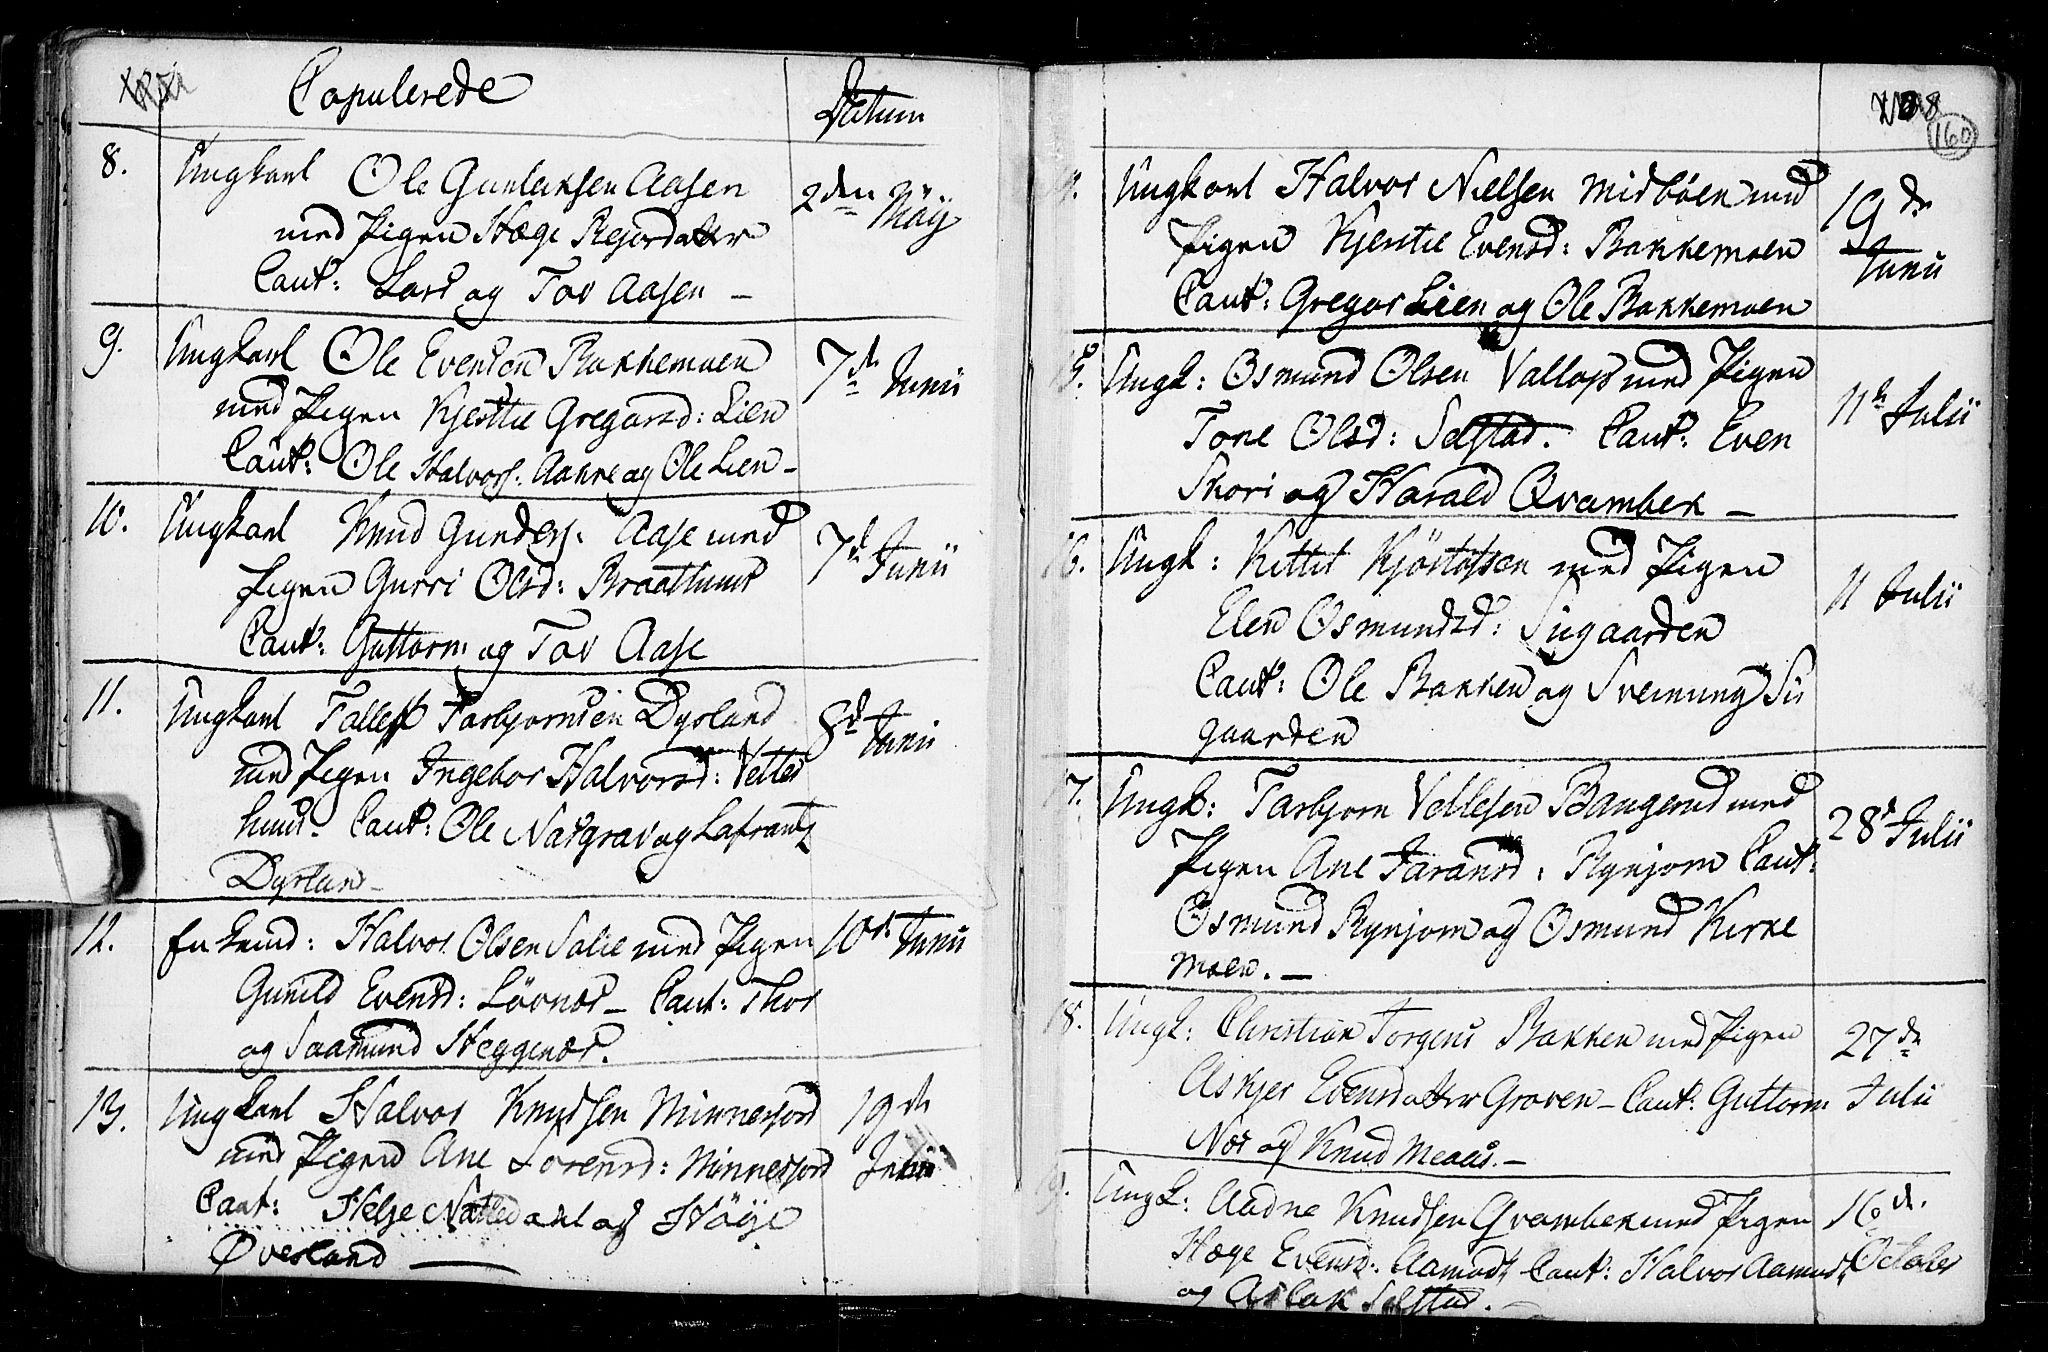 Copulerede
Datum
8.
Ungkarl Ole Gunleksen Aasen
med Pigen Hæge Rejersdatter
Caut: Lars og Tov Aasen –
2den Maÿ
9.
Ungkarl Ole Evensen Bakkemoen
med Pigen Kjersttie Gregarsd: Lien
Caut: Ole Halvors. Aakre og Ole Lien –
7de Junii
10.
Ungkarl Knud Gunders. Aase med
Pigen Gurri Olsd: Braathuus
Caut: Guttorm og Tov Aase
7d Junii
11.
Ungkarl Tallef Tarbjornsen Dyrland
med Pigen Ingebor Halvorsd: Vetter
huus. Caut: Ole Natgrav og Lafrantz
Dyrland –
8d Junii
12.
Enkemd: Halvor Olsen Solie med Pigen
Gunild Evensd: Lövnæs – Caut: Thor
og Saamund Heggenæs.
10d Junii
13.
Ungkarl Halvor Knudsen Minnesjord
med Pigen Ane Sorensd: Minnesjord
Caut: Helje Natledahl og Höÿe
Øvesland –
19de
Junii
108
160
14.
Ungkarl Halvor Nielsen Midböen med
Pigen Kjerstie Evensd: Bakkemoen
Caut: Gregar Lien og Ole Bakkemoen
19de
Junii
15.
Ungk: Osmund Olsen Vallaps med Pigen
Tone Olsd: Selstad. Caut: Even
Skori og Harald Qvambek –
11te Julii
16.
Ungk: Kittil Kjöstofsen med Pigen
Elen Osmundsd: Sugaarden
Caut: Ole Bakken og Sveinung Su
gaarden
11 Julii
17.
Ungk: Tarbjorn Vellesen Bangerud med
Pigen Ane Taransd: Rynjom Caut:
Osmund Rynjom og Osmund Kirke
moen. –
28d Julii
18.
Ungk: Christian Torgens Bakken med Pigen
Askjer Evensdatter Groven – Caut: Guttorm
Næs og Knud Meaas. –
27de
Julii
19.
Ungk: Aadne Knudsen Qvambek med Pigen
Hæge Evensd: Aamodt Caut: Halvor Aamodt
og Aslak Selstad. –
16d.
October